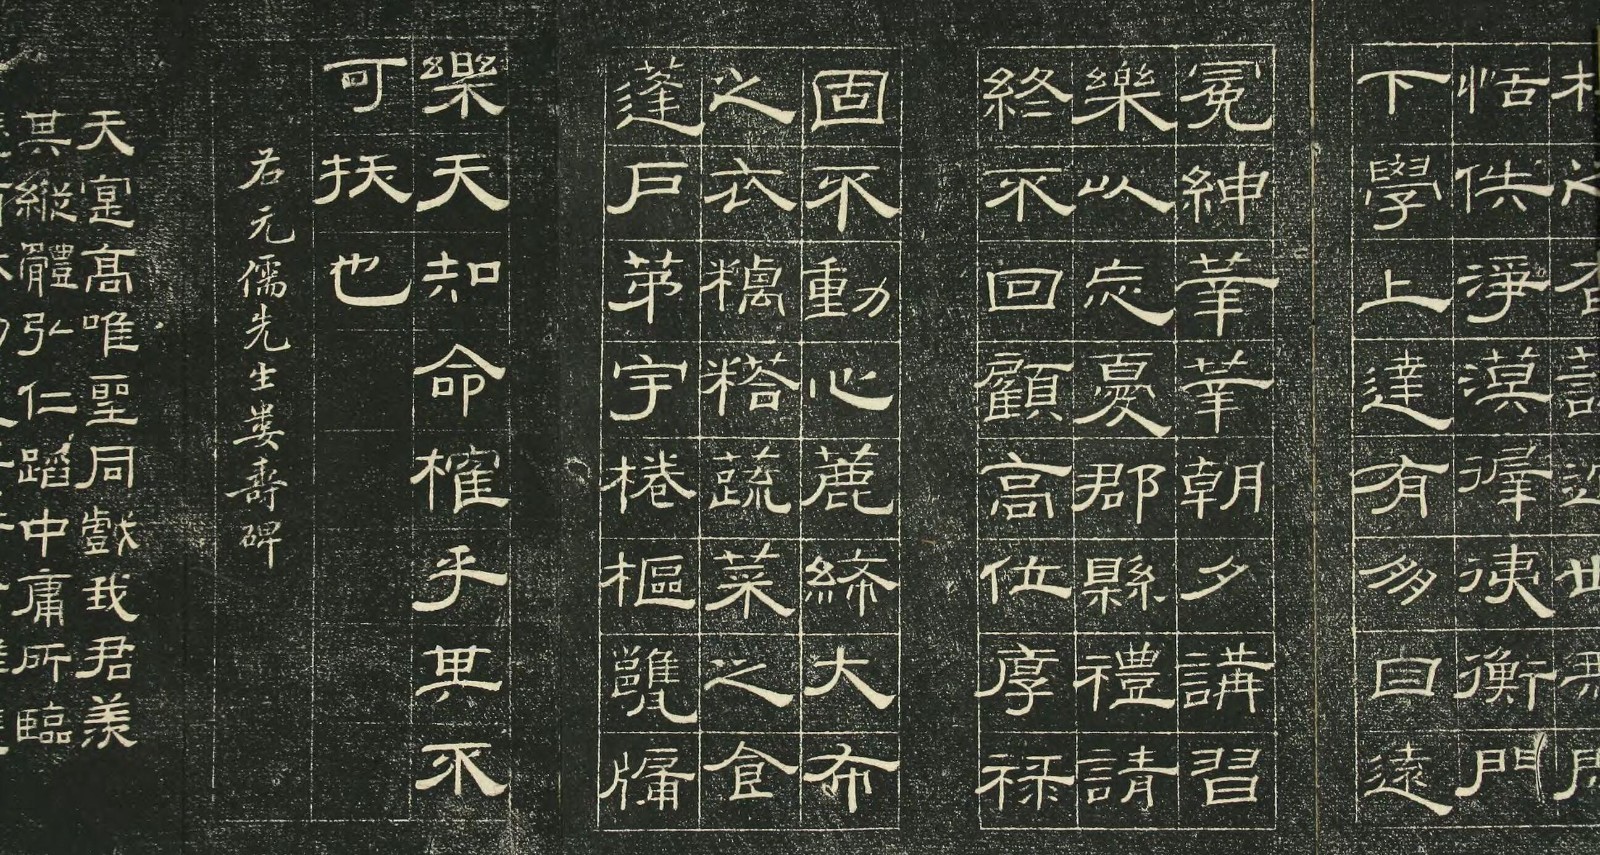 恬佚淨漠徲徥衡門
下學上達有多曰遠
冕紳莘莘朝夕講習
樂以忘憂郡縣禮請
終不回顧高位厚祿
固不動心麤絺大布
之衣糲𥹭蔬菜之食
蓬戶茅宇棬樞甕牖
樂天知命榷乎其不
可拔也
右元儒先生婁壽碑
天寔高唯聖同戲我君羨
其縱體弘仁蹈中庸所臨